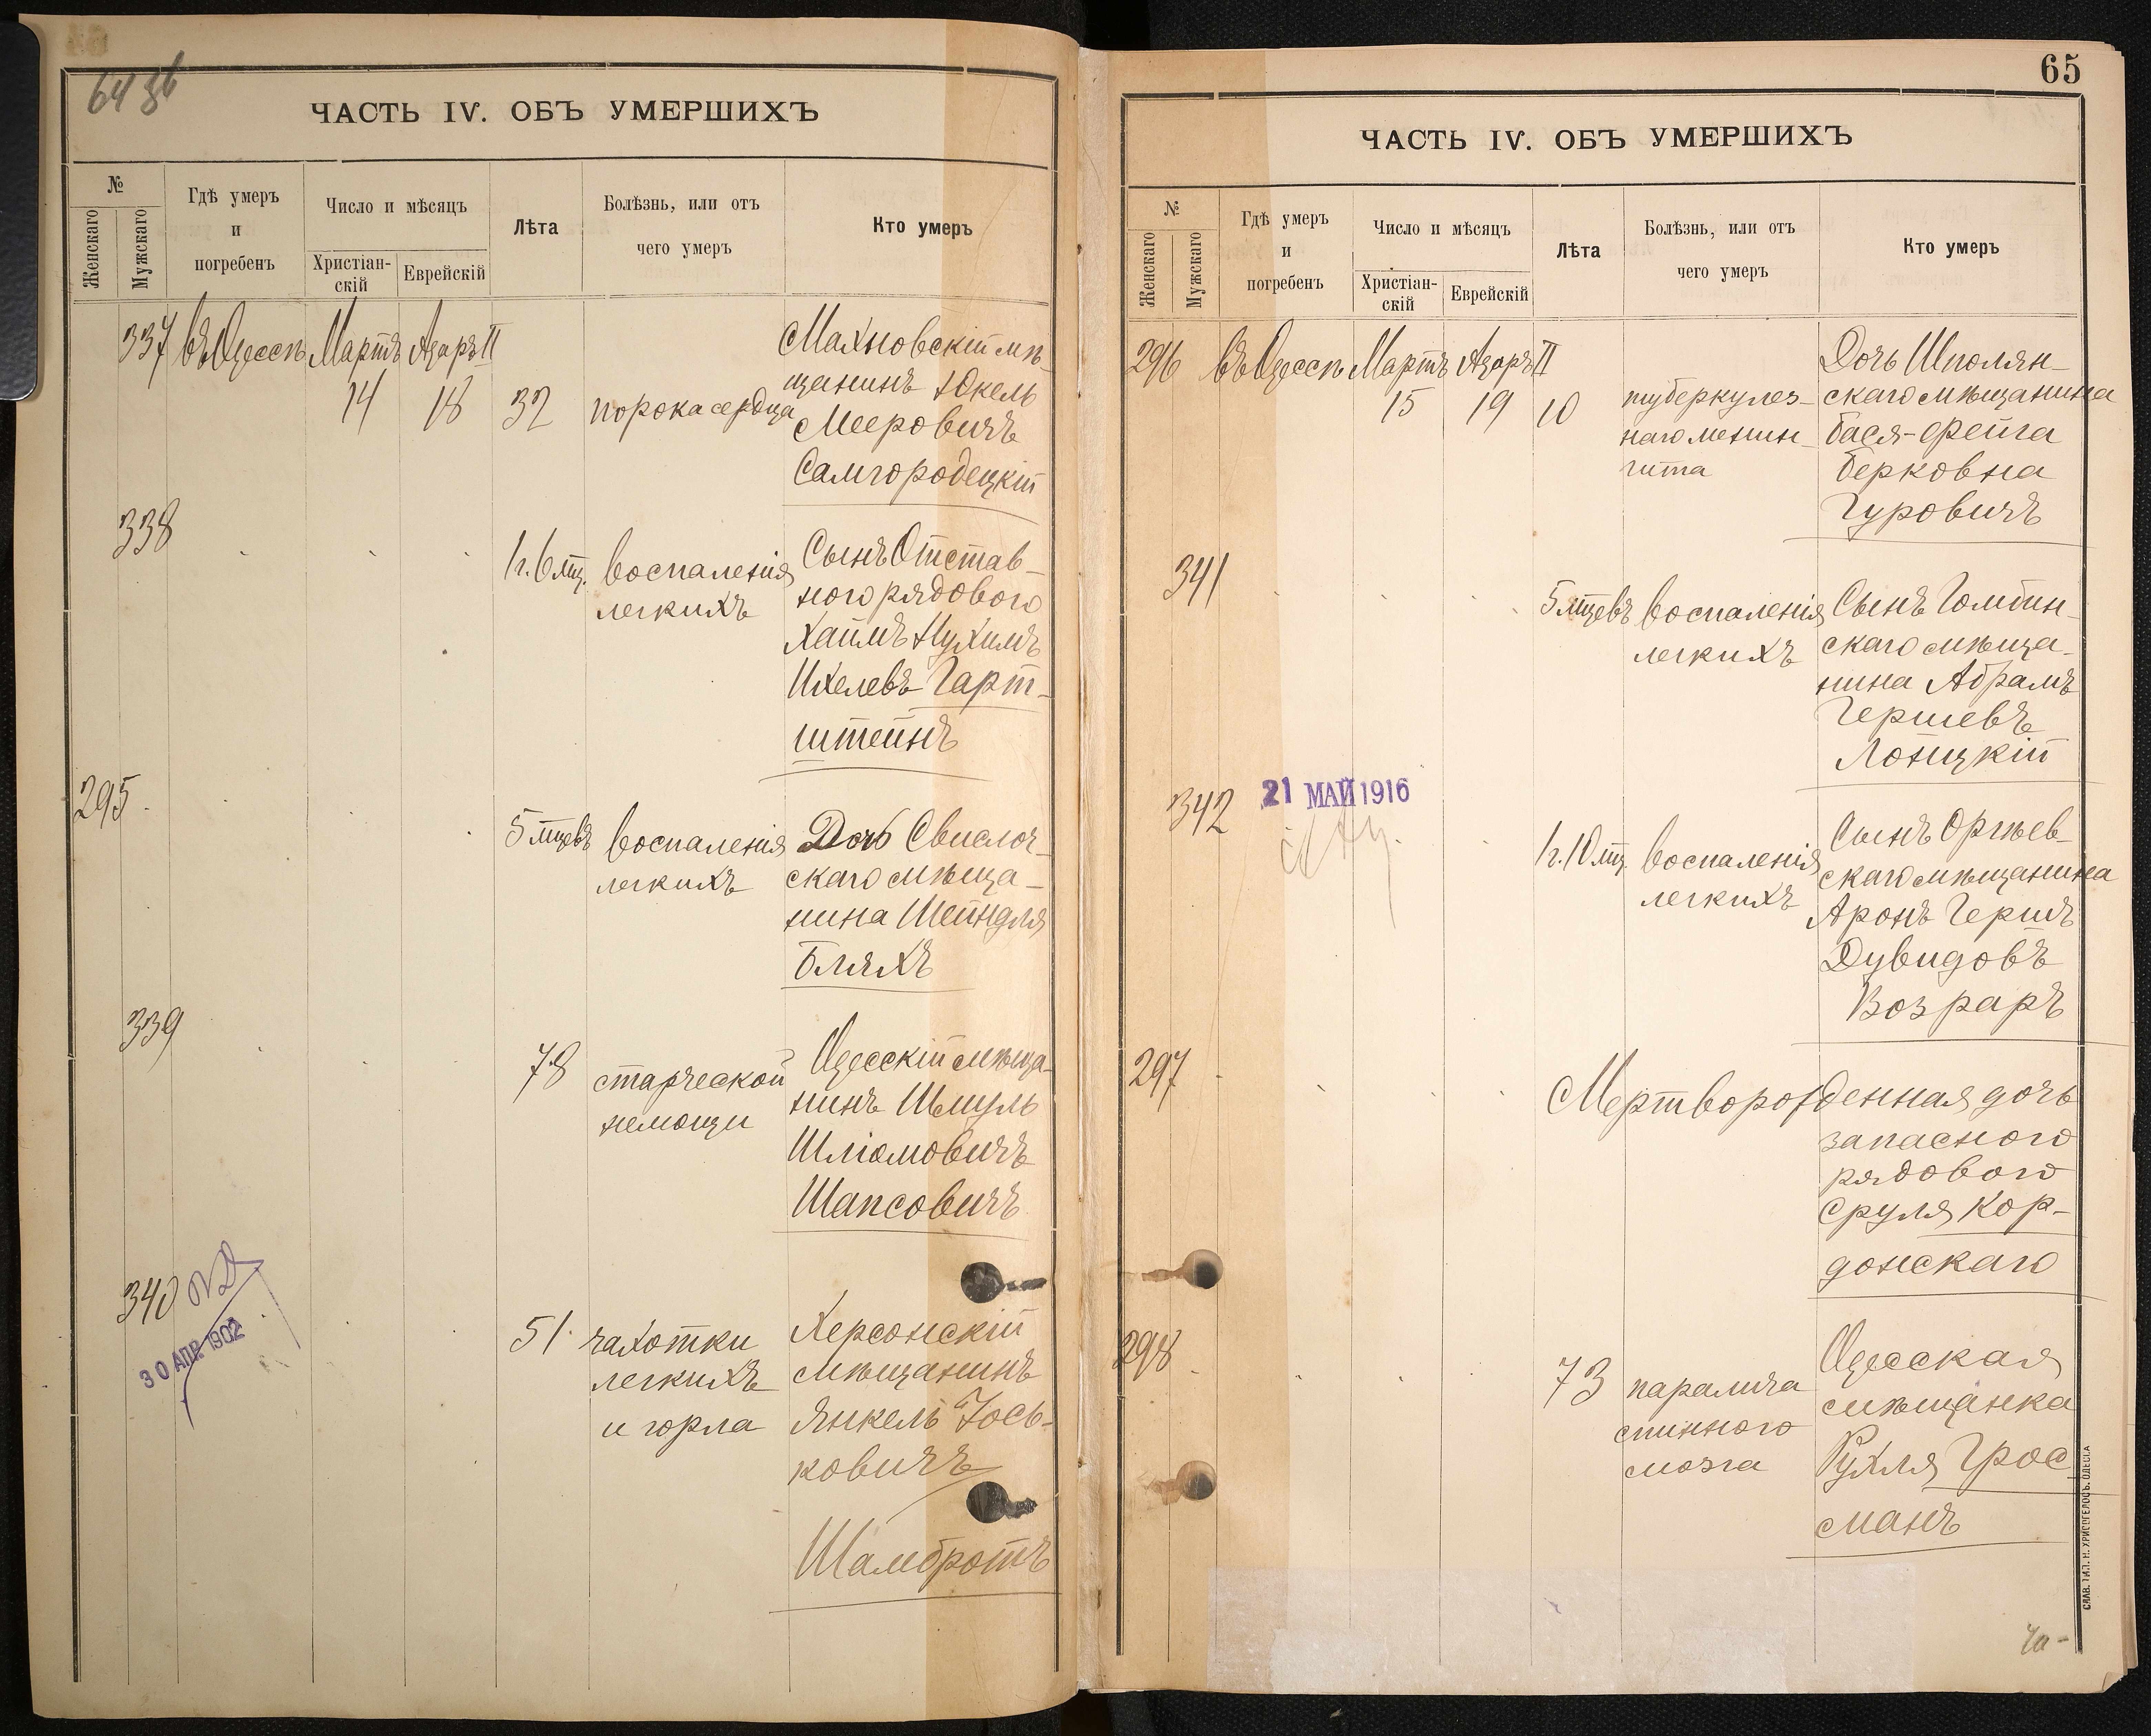 64 зв
ЧАСТЬ IV. ОБЪ УМЕРШИХЪ
№
Женскаго
Мужскаго
Гдѣ умеръ
и
погребенъ
Число и мѣсяцъ
Христіан-
скій
Еврейскій
Лѣта
Болѣзнь, или отъ
чего умеръ
Кто умеръ
337 въ Одессѣ Мартъ Адаръ II
14 18 32 порока сердца
Махновскій мѣ-
щанинъ Юкель
Мееровичъ
Самгородецкій
338
1 г. 6 мц. воспаленія
легкихъ
Сынъ Отстав-
ного рядового
Хаимъ Нухимъ
Ихелевъ Гарт-
штейнъ
295
5 мцевъ воспаленія
легкихъ
Дочь Свислоч-
скаго мѣща-
нина Шейндля
Бляхъ
339
78 старческой
немощи
Одесскій мѣща-
нинъ Шмуль
Шліомовичъ
Шапсовичъ
340
30 АПР. 1902
51 чахотки
легкихъ
и горла
Херсонскій
мѣщанинъ
Янкель Іось-
ковичъ
Шамбротъ
65
ЧАСТЬ IV. ОБЪ УМЕРШИХЪ
№
Женскаго
Мужскаго
Гдѣ умеръ
и
погребенъ
Число и мѣсяцъ
Христіан-
скій
Еврейскій
Лѣта
Болѣзнь, или отъ
чего умеръ
Кто умеръ
296 въ Одессѣ Мартъ Адаръ II
15 19 10 туберкулез-
наго менин-
гита
Дочь Шполян-
скаго мѣщанина
Бася-Фейга
Берковна
Гуровичъ
341
5 мцевъ воспаленія
легкихъ
Сынъ Гомбин-
скаго мѣща-
нина Абрамъ
Гершевъ
Лоницкій
342
21 МАЙ 1916
1 г. 10 мц. воспаленія
легкихъ
Сынъ Оргѣев-
скаго мѣщанина
Аронъ Гершъ
Дувидовъ
Возраръ
297
Мертворожденная дочь
запасного
рядового
Сруля Кор-
донскаго
298
73 паралича
спинного
мозга
Одесская
мѣщанка
Рухля Грос
манъ
СЛАВ. ТИП. Н. ХРИСОГЕЛОСЪ. ОДЕССА